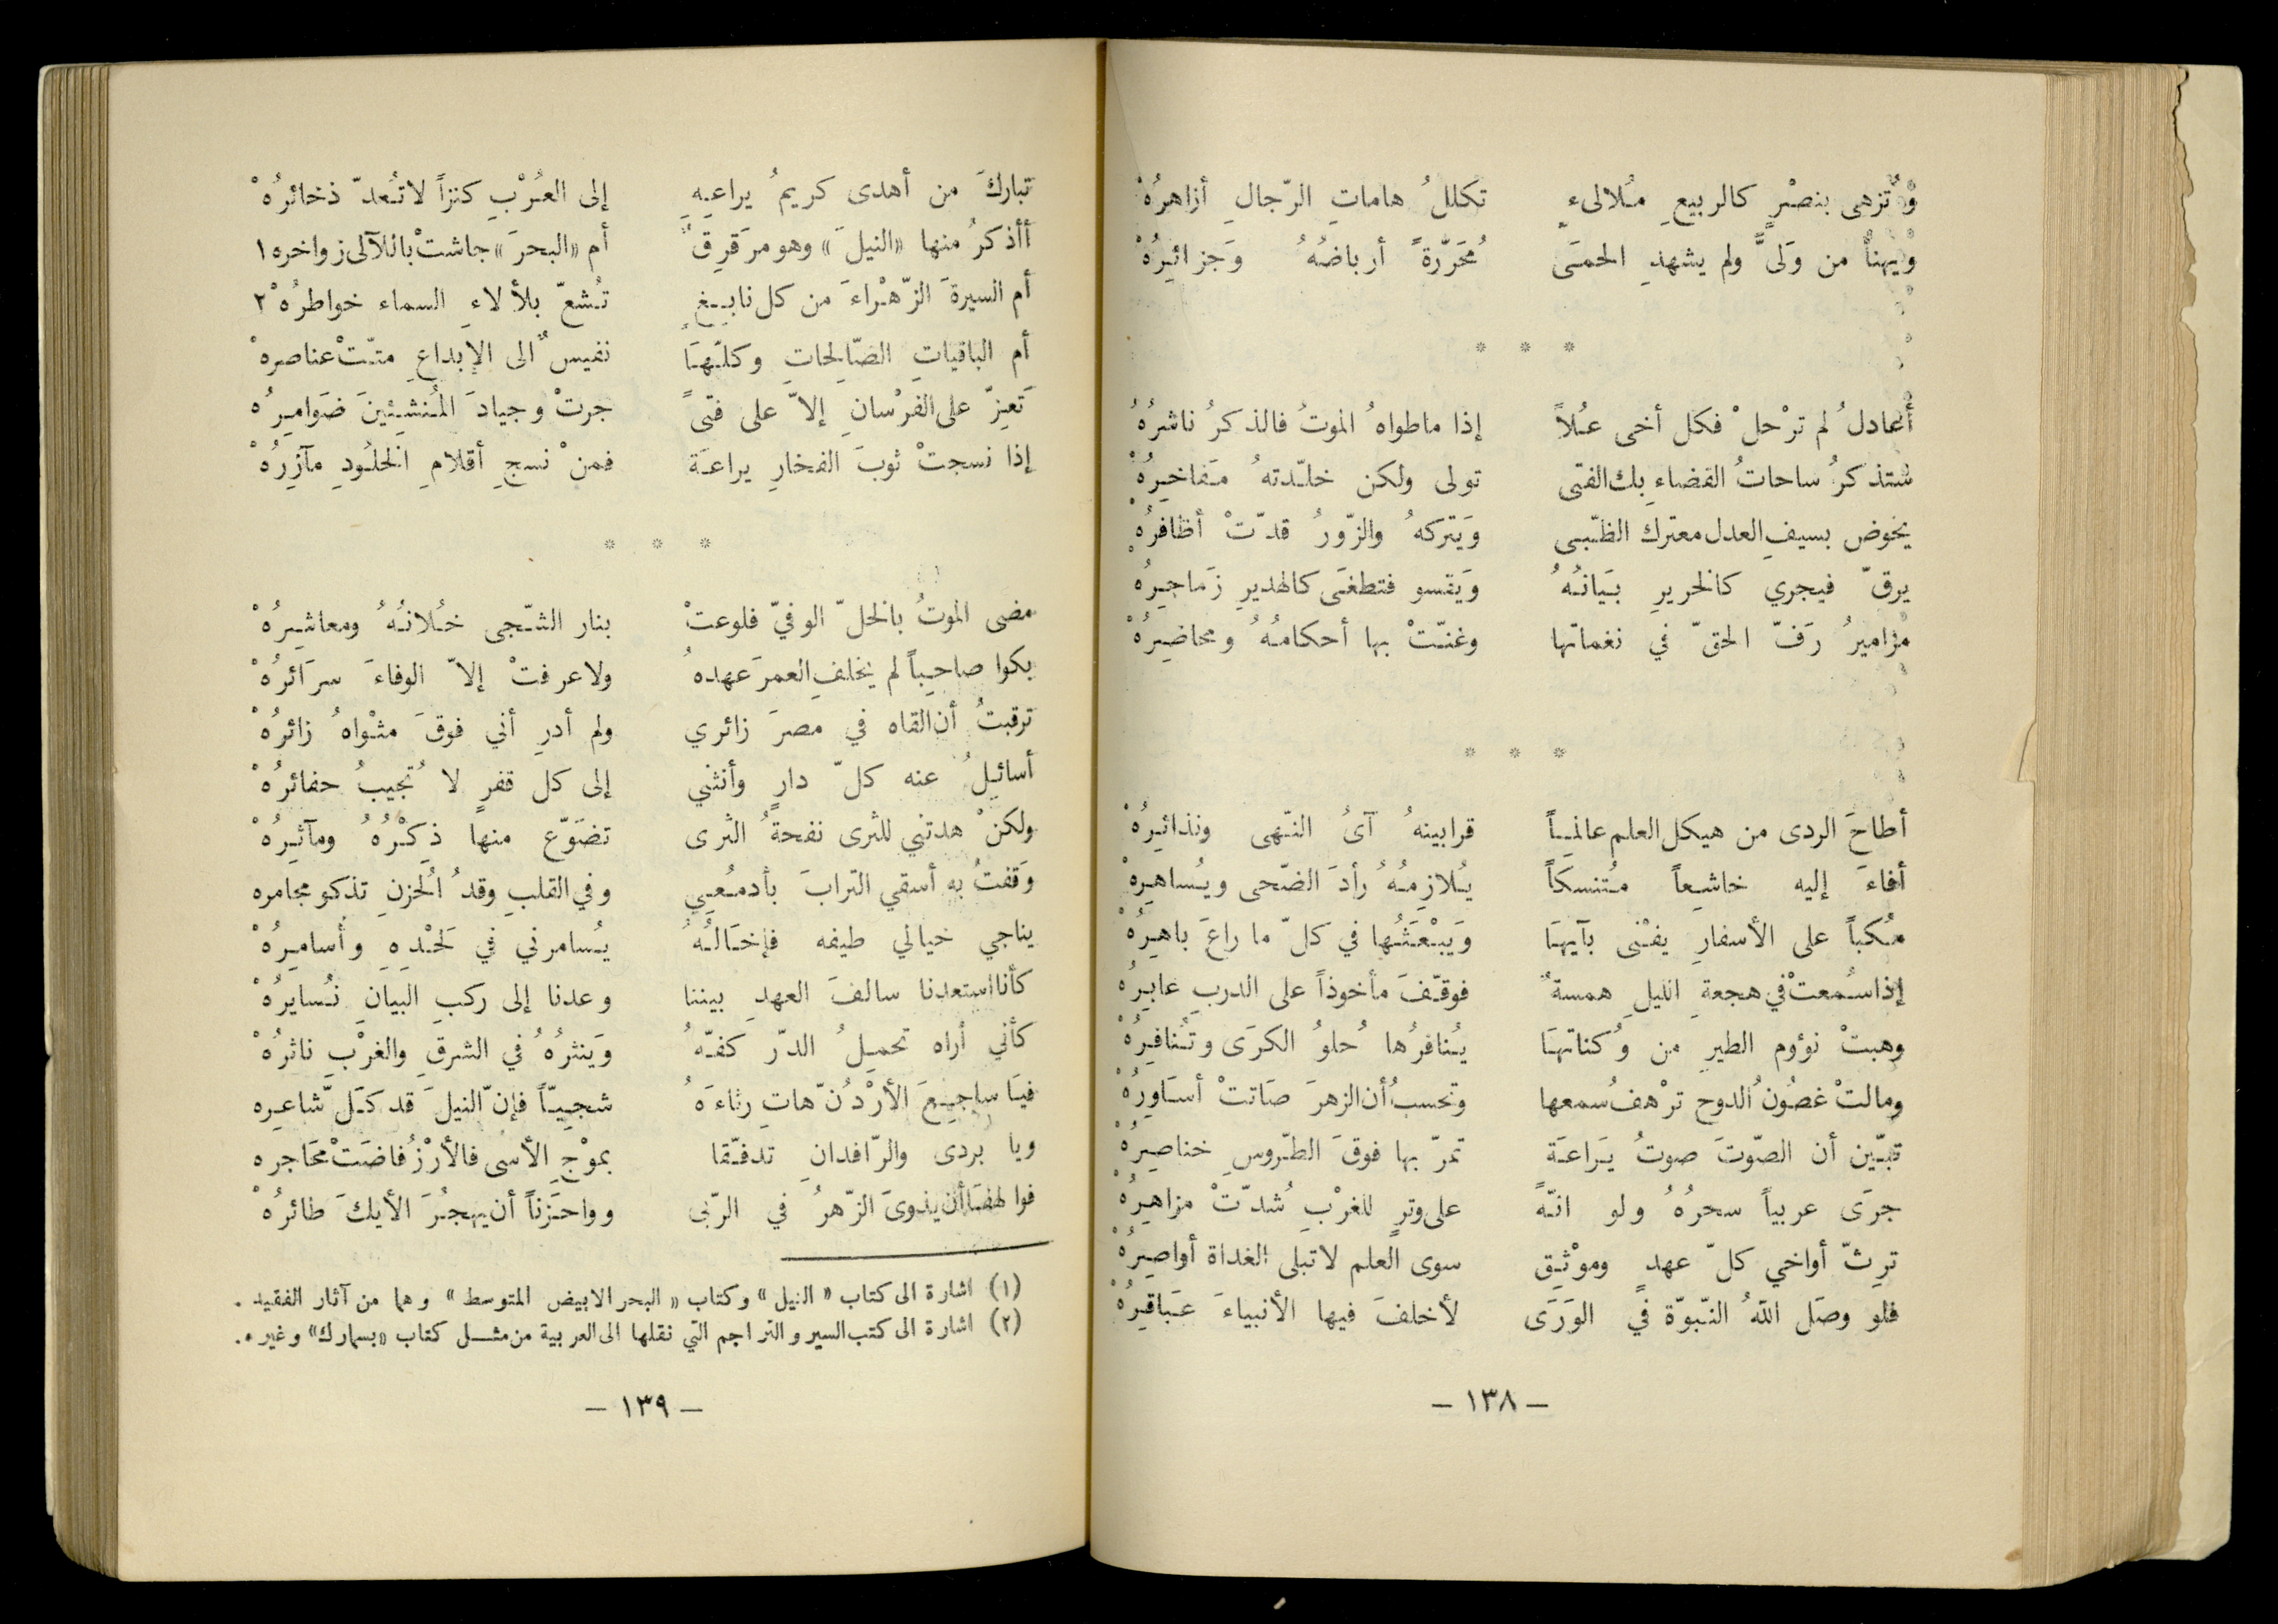 وُتزهى بنصْرٍ كالربيعِ مُلالىءٍ تكللُ هاماتِ الرّجالِ أزاهرُهْ
ويهنأ من وَلىَّ ولم يشهدِ الحمَى مُحَرَّرةً أرباضُهُ وَجزائرُهْ
* * *
أعادلُ لم ترْحلْ فكل أخى عُلاً إذا ماطواهُ الموتُ فالذكرُ ناشرُهُ
ستذكرُ ساحاتُ القضاءِ بك الفتى تولى ولكن خلّدتهُ مَفاخِرُهْ
يخوض بسيفِ العدل معترك الظّبى وَيتركهُ والزّورُ قدّتْ أظافرُهْ
يرقّ فيجري كالخريرِ بَيَانُهُ وَيقسو فتطغَى كالهديرِ زَماجِرُهْ
مزاميرُ رَفّ الحقّ في نغماتها وغنّتْ بها أحكامُهُ ومحاضِرُهْ
* * *
أطاحَ الردى من هيكل العلم عالمَاً قرابينهُ آىُ النّهى ونذائِرُهْ
أفاءَ إليه خاشِعاً مُتنسكاً يُلازِمُهُ رأدَ الضّحى ويُساهِرهْ
مُكباً على الأسفارِ يفنْى بآيهَا وَيبْعَثُها في كلّ ما راعَ باهِرُهْ
إذا سُمعتْ في هجعةِ الليلِ همسةٌ فوقّفَ مأخوذاً على الدربِ عابِرُهْ
وهبتْ نؤوم الطيرِ من وُكناتهَا يُنافرُها حُلوُ الكرَى وتُنافِرُهْ
ومالتْ غصُونُ الدوح ترْهفُ سمعها وتحسبُ أن الزهرَ صَاتتْ أسَاوِرُهْ
تبّين أن الصّوتَ صوتُ يَراعَة تمرّ بها فوقَ الطّروسِ خناصِرُهْ
جرَى عربياً سحرُهُ ولو انّهً على وترٍ للغرْبِ شُدّتْ مزاهِرُهْ
ترِثّ أواخي كلّ عهدٍ وموْثِق سوى العلم لاتبلى الغداة أواصِرُهْ
فلو وصَل اللهُ النّبوّة في الوَرَى لأخلفَ فيها الأنبياءَ عَباقِرُهْ
— ١٣٨ —
تباركَ من أهدى كريمُ يراعِهِ إلى العُرْبِ كنزاً لاتُعدّ ذخائرُهْ
أأذكرُ منها «النيلَ» وهو مرَقرِقٌ أم «البحرَ» جاشتْ باللآلى زواخره١
أم السيرةَ الزّهْراءَ من كل نابغٍ تُشعّ بلألاءِ السماء خواطرُهْ٢
أم الباقياتِ الصّالِحاتِ وكلّهَا نفيسٌ الى الإبداعِ متّتْ عناصرهْ
تَعِزّ على الفرْسانِ إلاّ على فتىً جرتْ وجيادَ المُنشِئينَ ضَوامِرُه
إذا نسجتْ ثوبَ الفخارِ يراعَة فمنْ نسجِ أقلامِ الخلُودِ مآزِرُهْ
* * *
مضى الموتُ بالخلّ الوفيّ فلوعتْ بنار الشّجى خُلانُهُ ومعاشِرُهْ
بكوا صاحِباً لم يخلفِ العمرَ عهدهُ ولاعرفتْ إلاّ الوفاءَ سرَائرُهْ
ترقبتُ أن القاه في مصرَ زائري ولم أدرِ أني فوقَ مثْواهُ زائرُهْ
أسائِلُ عنه كلّ دارٍ وأنثني إلى كل قفرٍ لا تُجيبُ حفائرُهْ
ولكنْ هدتني للثرى نفحةُ الثرى تضَوّع منها ذِكْرُهُ ومآثِرُهْ
وَقفتُ به أسقي الترابَ بأدمُعِي وفي القلبِ وقدُ الُحزنِ تذكو مجامره
يناجي خيالي طيفه فإخَالُهُ يُسامرني في لَحْدِهِ وأسامِرُهْ
كأنا استعدنا سالفَ العهدِ بيننا وعدنا إلى ركبِ البيانِ نُسايرُهْ
كأني أراه تحمِلُ الدرّ كفّهُ وَينثرُهُ في الشرقِ والغرْبِ ناثرُهْ
فيَا ساجِعَ الأرْدُنّ هاتِ رثاءَهُ شجِيّاً فإنّ النيلَ قد كَلّ شاعِره
ويا بردى والرّافدانِ تدفّقا بموْجِ الأسى فالأرْزُ فاضَتْ محَاجره
فوا لهفَا أن يذوىَ الزّهرُ في الرّبى وواحَزناً أن يهجُرَ الأيكَ طائرُهْ
(١) اشارة الى كتاب «النيل» وكتاب «البحر الابيض المتوسط» وهما من آثار الفقيد.
(٢) اشارة الى كتب السير والتراجم التي نقلها الى العربية من مثل كتاب «بسمارك» وغيره.
— ١٣٩ —